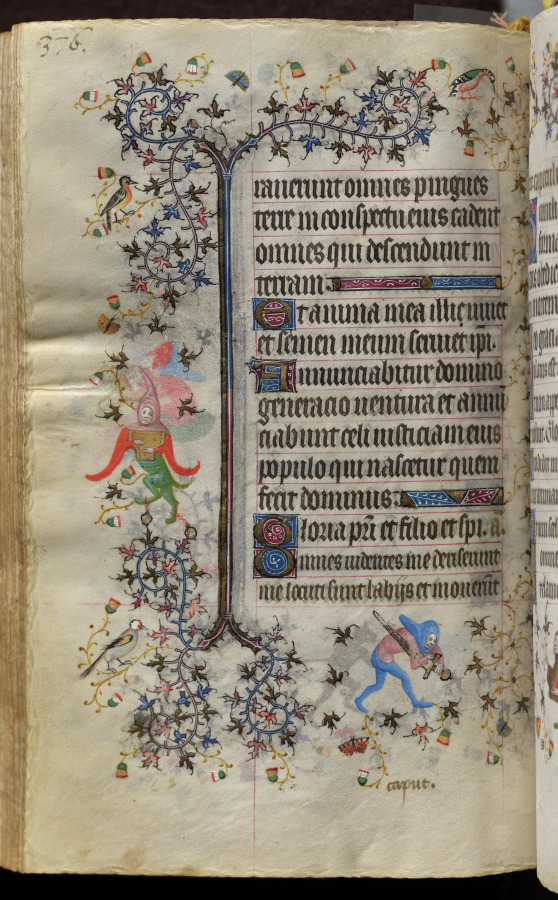 376.
rauerunt omnes pingues
terre in conspectu eius cadent
omnes qui descendunt in
terram.
Et anima mea illi viuet
et semen meum seruiet ipi.
Annunciabitur domino
generacio uentura et annu
ciabunt celi iusticiam eius
populo qui nascetur quem
fecit dominus:
Gloria pri et filio et spi. a.
Omnes uidentes me deriserunt
me locuti sunt labijs et mouerut
caput.